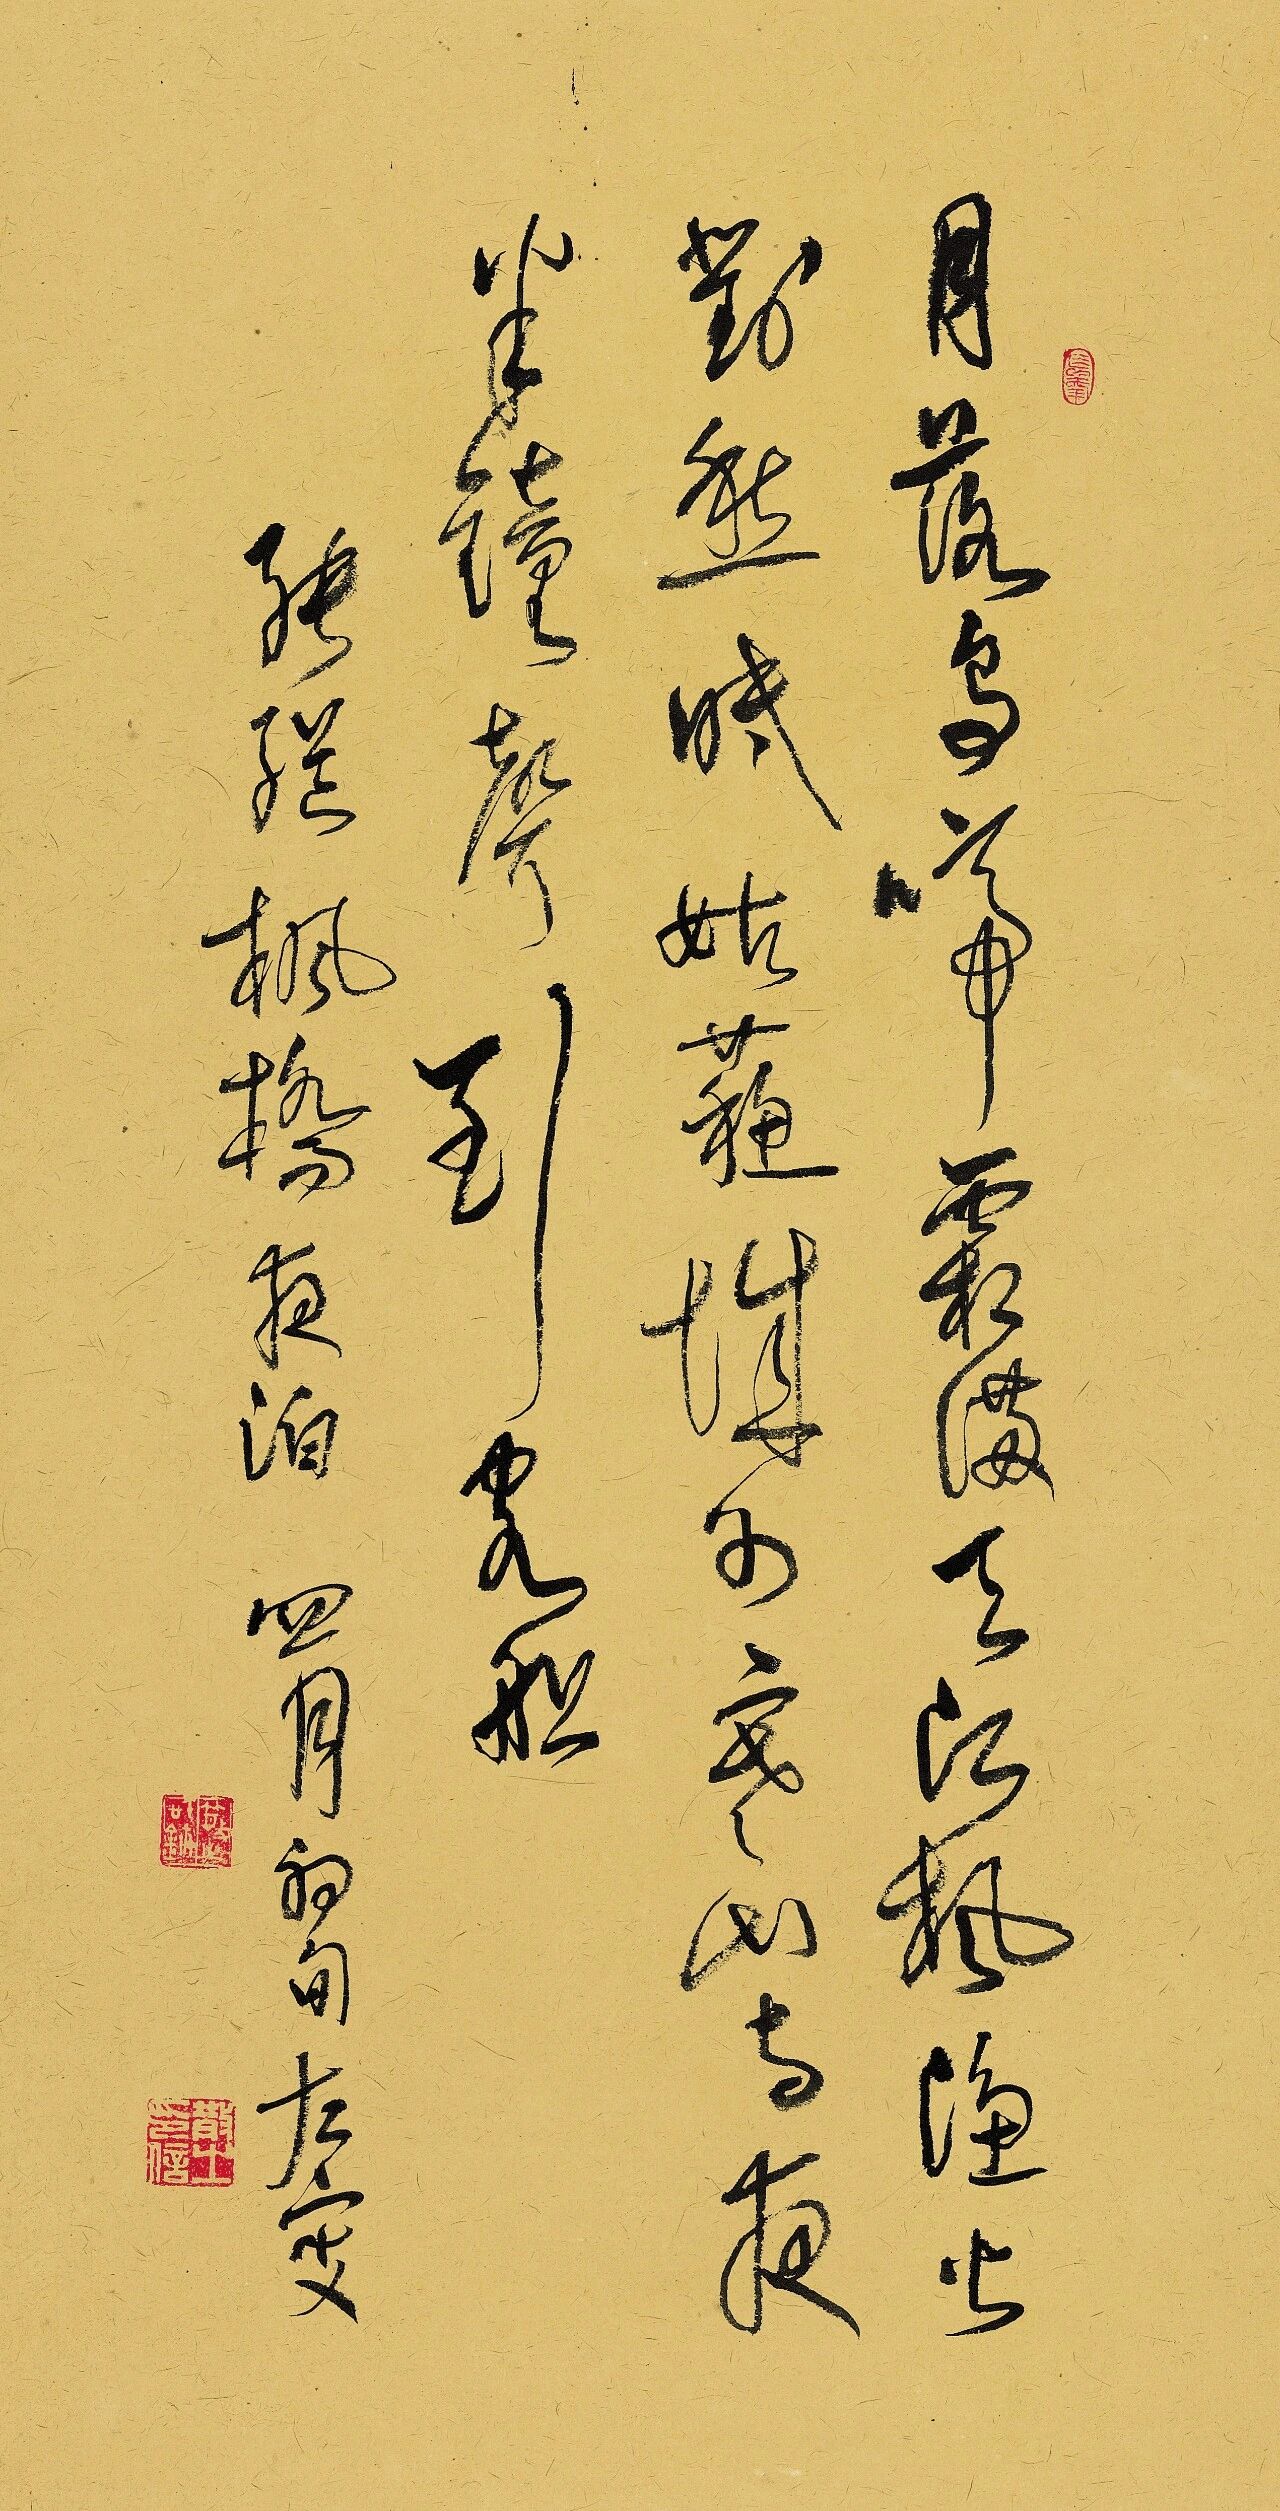 月落烏啼霜滿天江楓漁火
對愁眠姑蘇城外寒山寺夜
半鐘聲到客船
張繼楓橋夜泊 四月初旬左